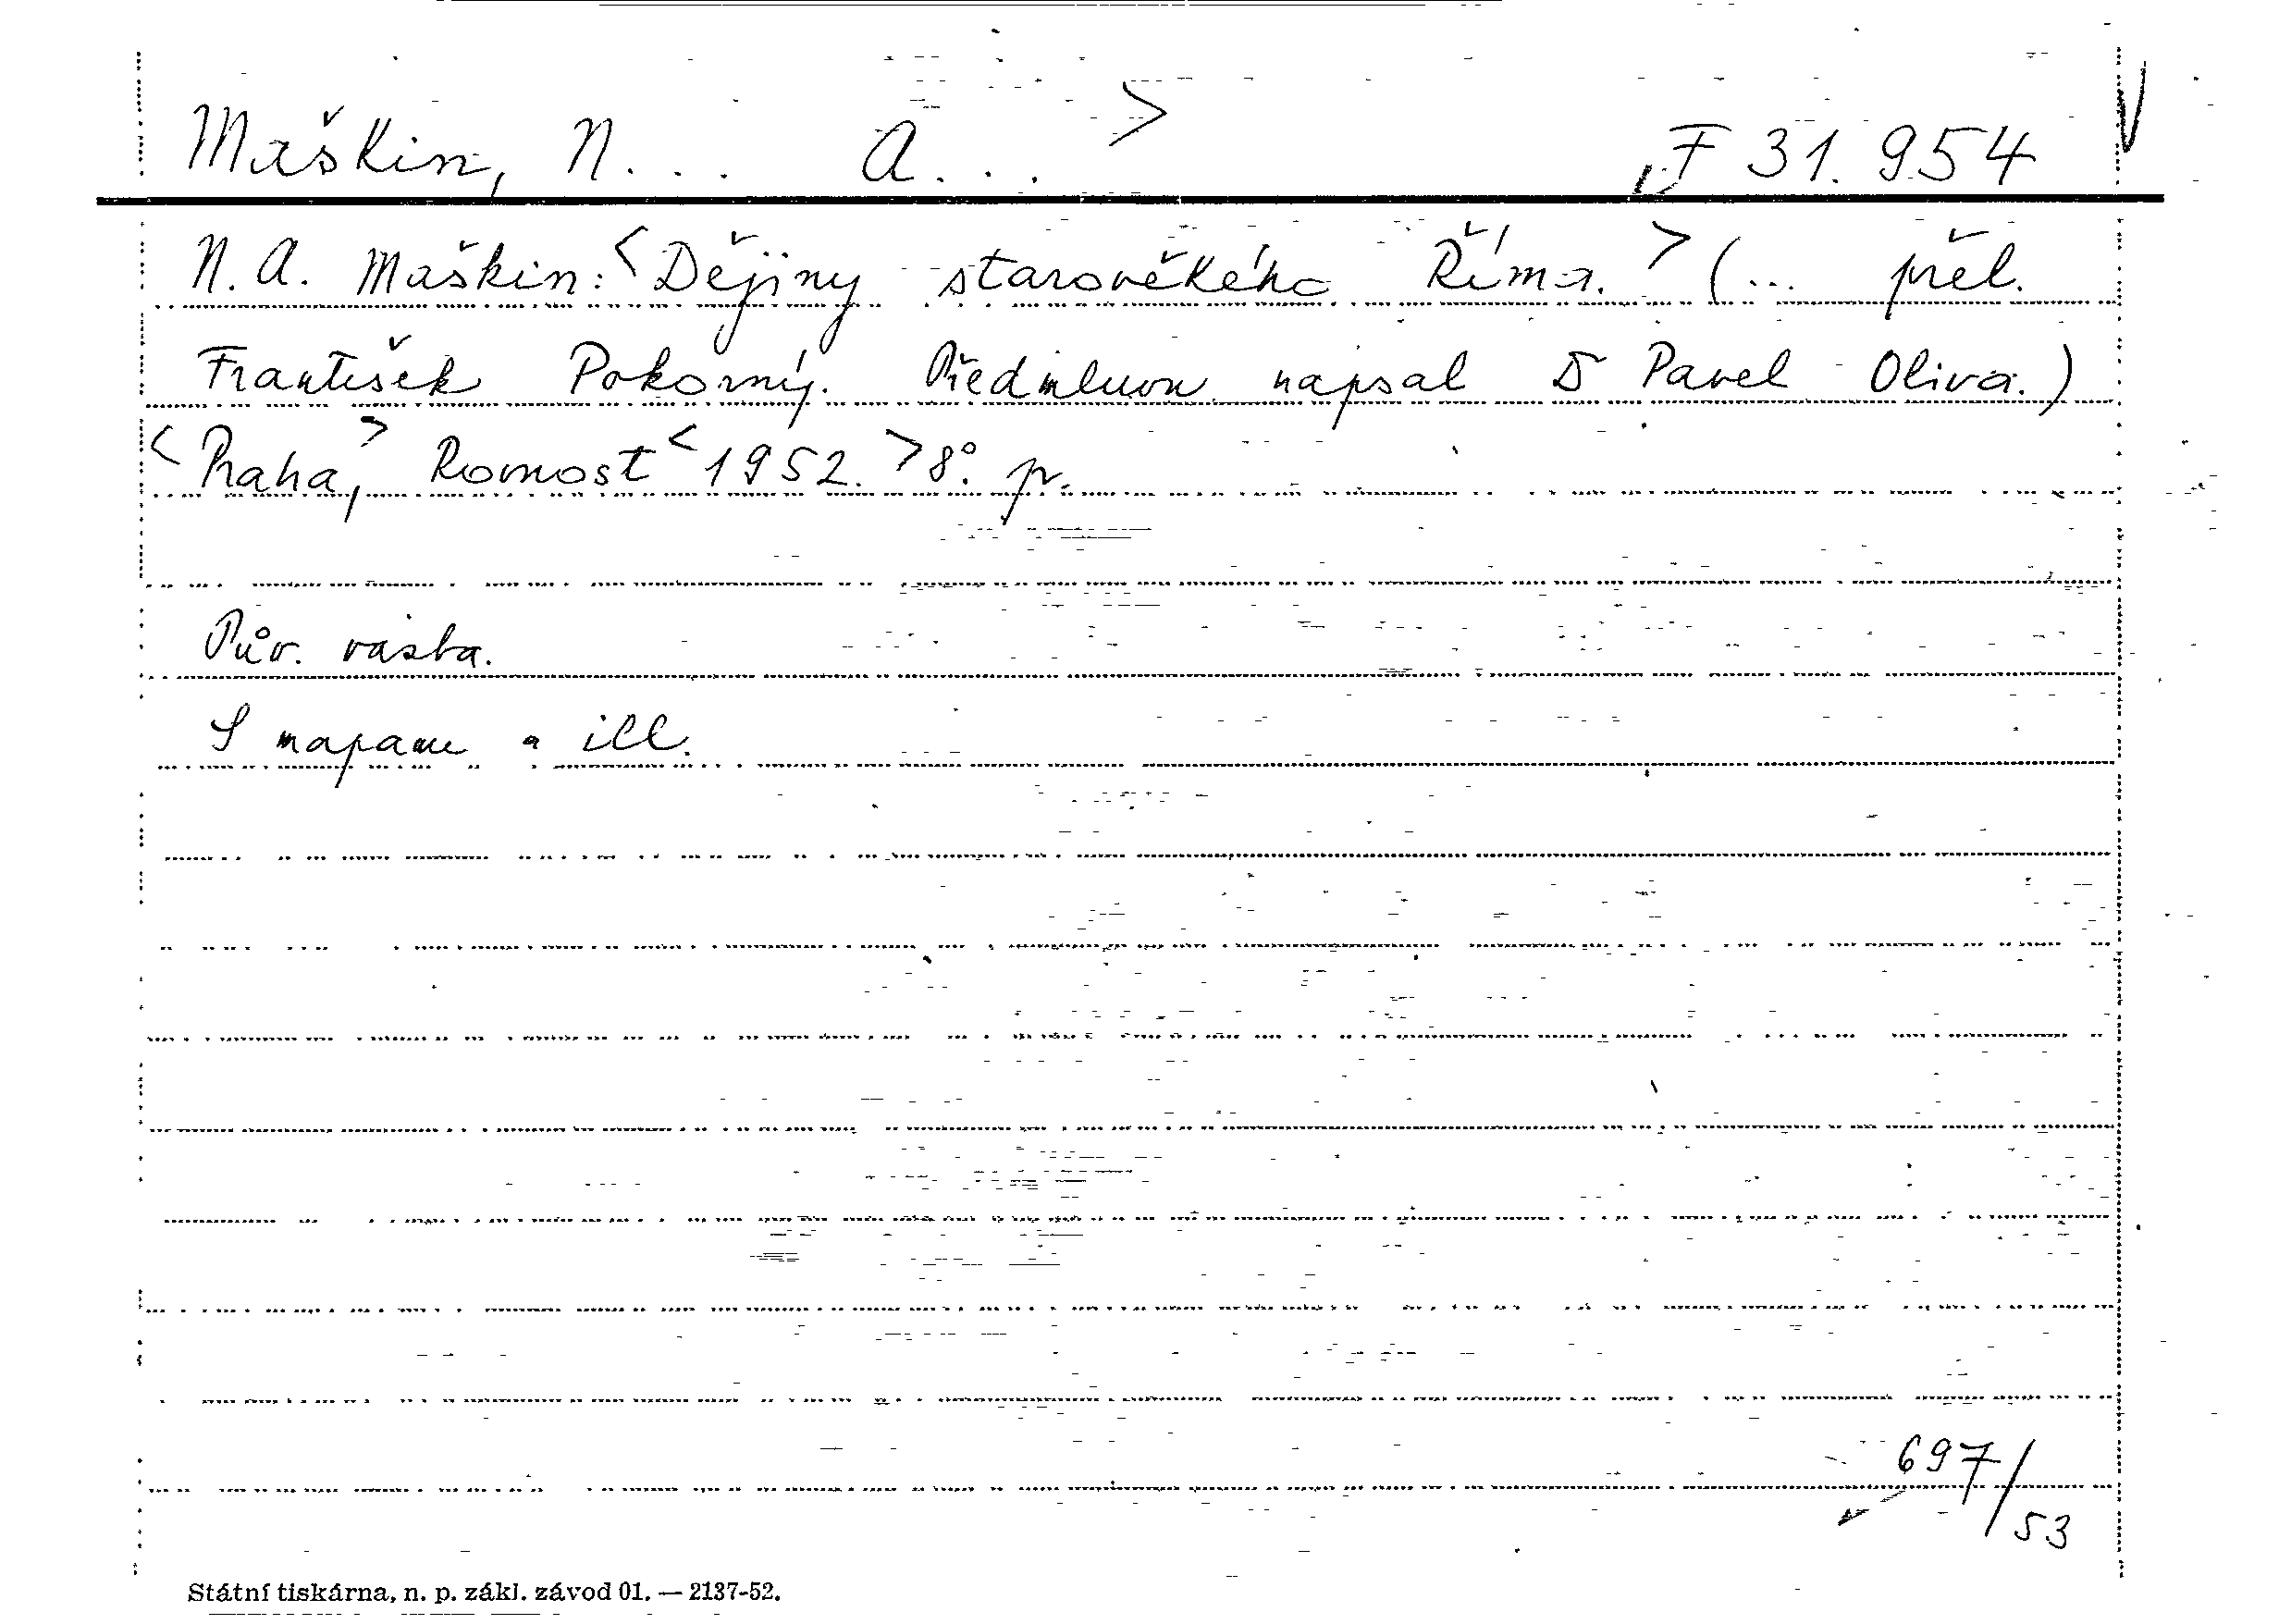 Maškin, N... A... > F 31.954
N. A. Maškin: <Dějiny starověkého Říma.> (... přel.
František Pokorný. Předmluvu napsal D Pavel Oliva.)
<Praha,> Rovnost <1952.> 8°. p.
Pův. vazba.
S mapami a ill.
697/53
Státní tiskárna, n. p. zákl. závod 01. — 2137-52.